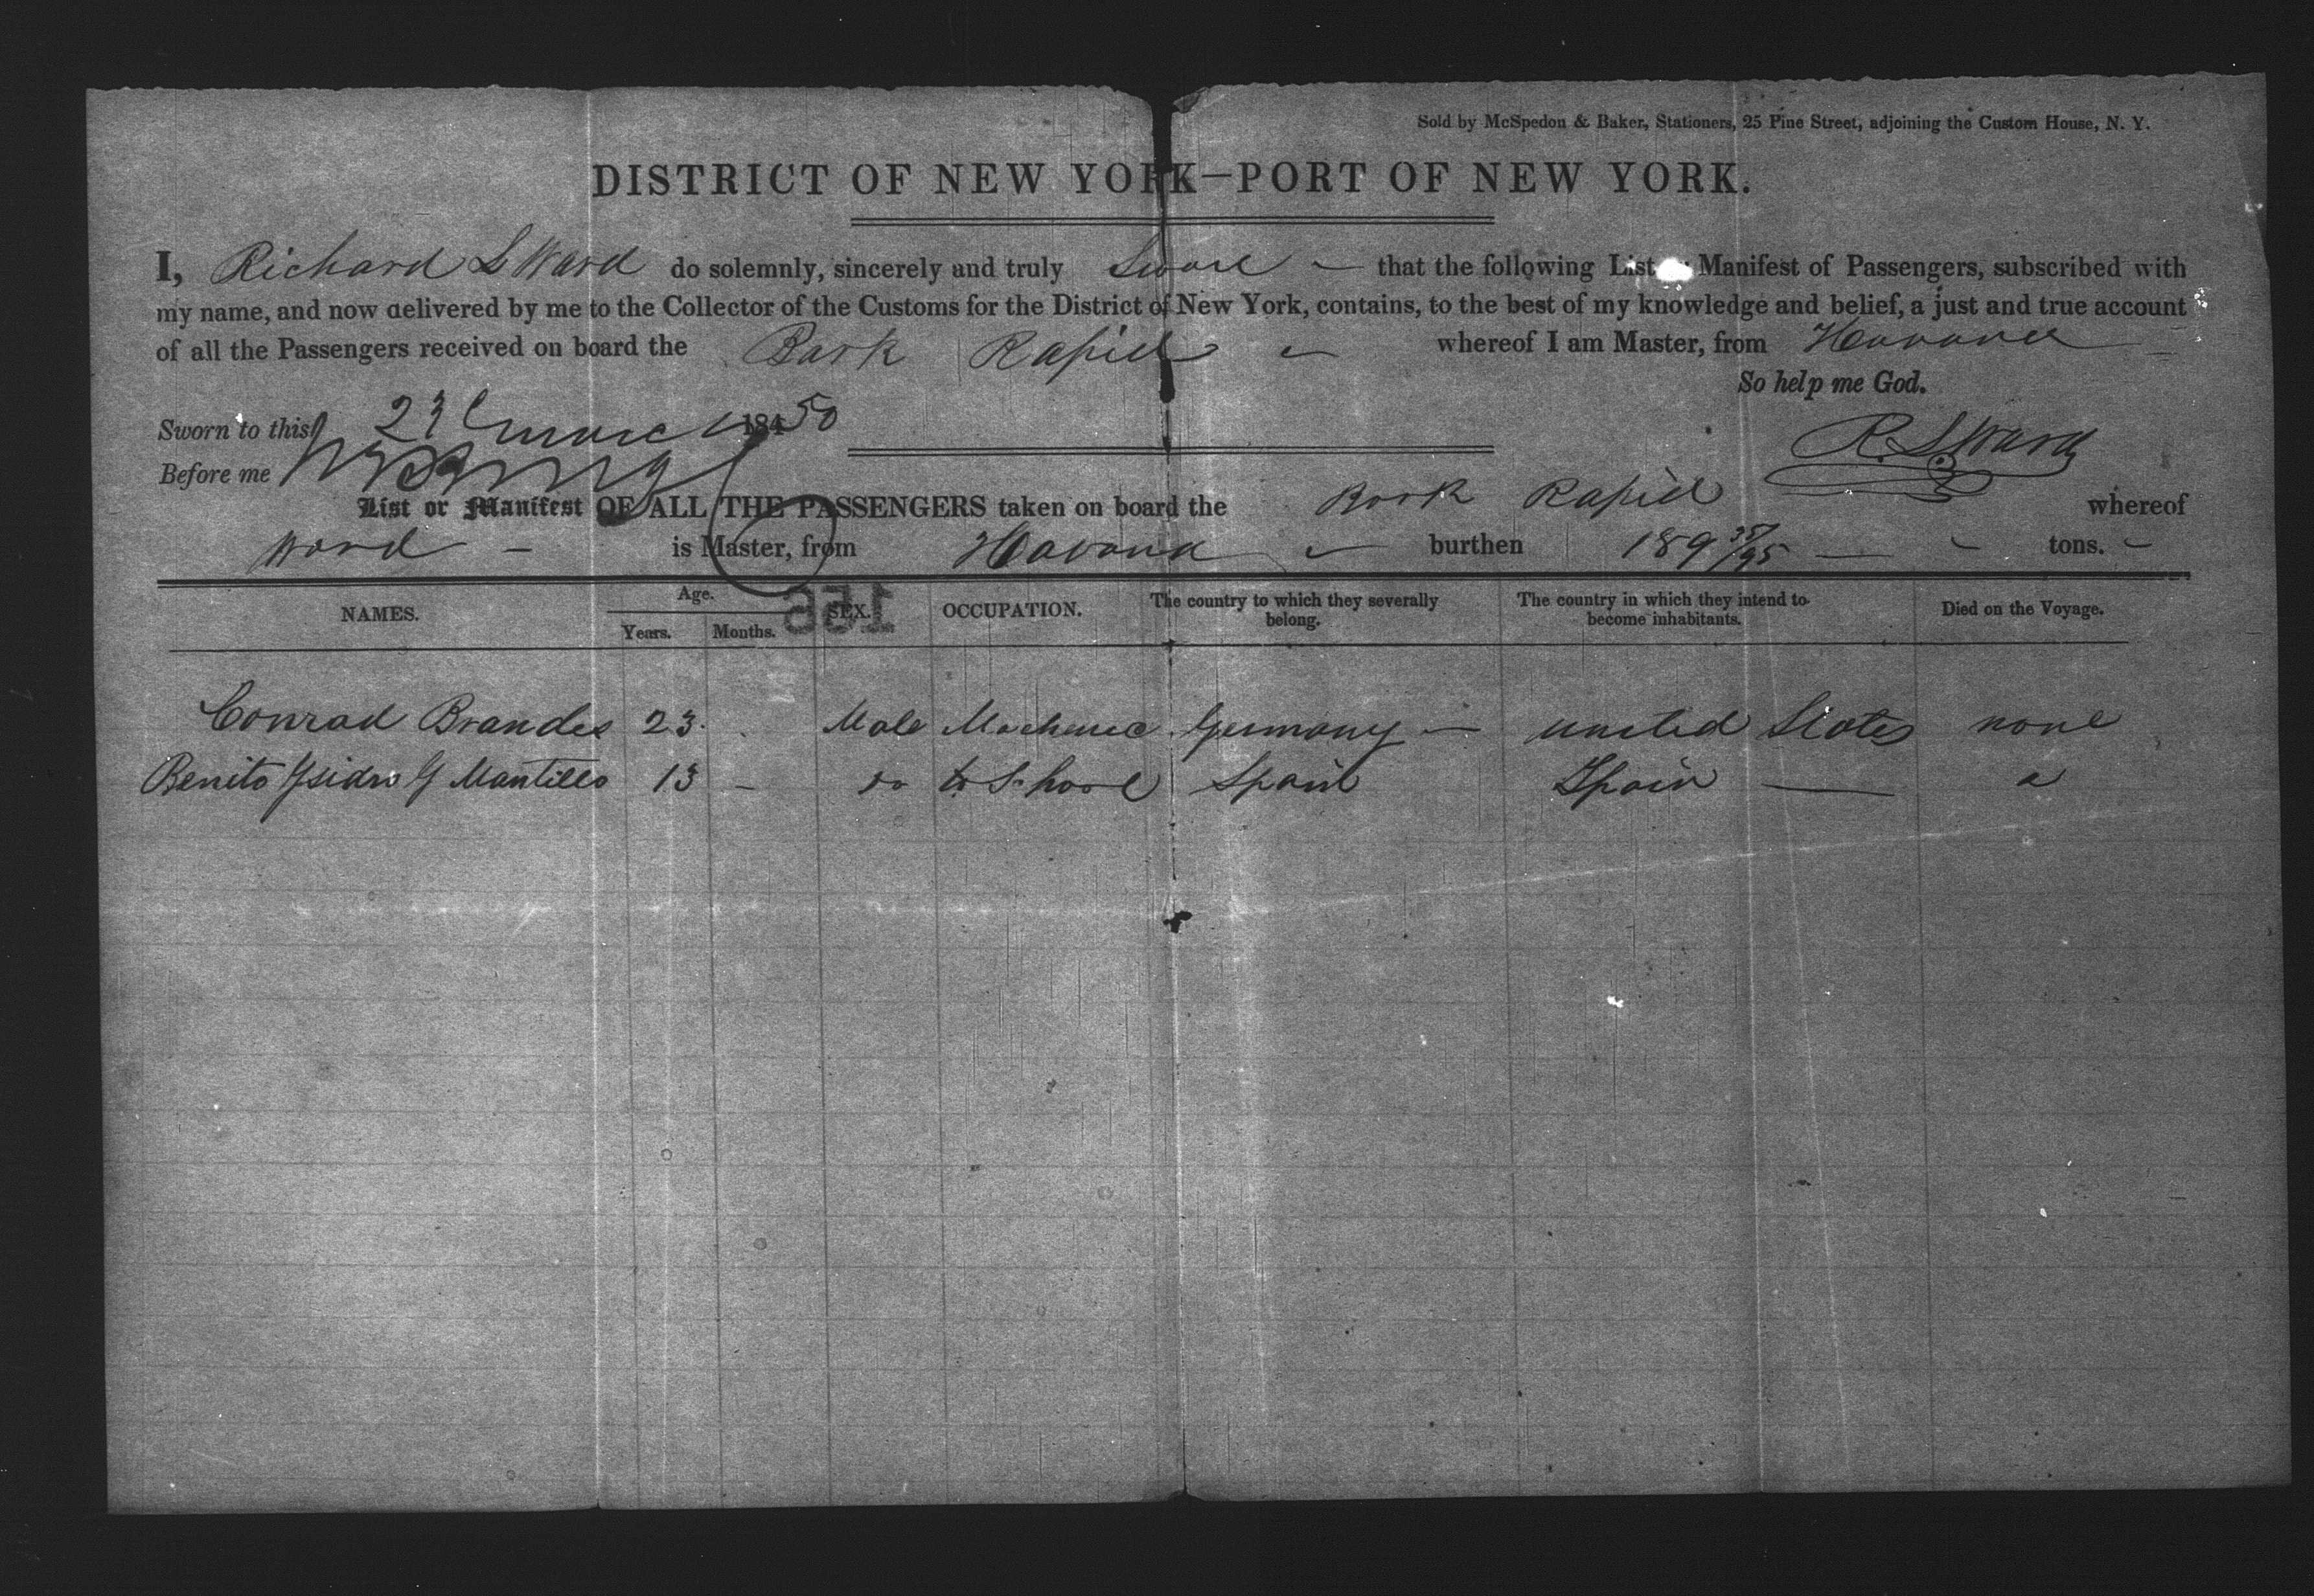 Sold by McSpedon & Baker, Stationers, 25 Pine Street, adjoining the Custom House, N. Y.
DISTRICT OF NEW YORK—PORT OF NEW YORK.
I, Richard S Ward do solemnly, sincerely and truly Swore that the following List Manifest of Passengers, subscribed with
my name, and now delivered by me to the Collector of the Customs for the District of New York, contains, to the best of my knowledge and belief, a just and true account
of all the Passengers received on board the Bark Rapid whereof I am Master, from Havana
So help me God.
Sworn to this 23 March 184 50
R. S Ward
Before me
List or Manifest OF ALL THE PASSENGERS taken on board the Bark Rapid whereof
Ward is Master, from Havana burthen 189 35/95 tons.
156
NAMES. Age. Years. Months. SEX. OCCUPATION. The country to which they severally belong. The country in which they intend to become inhabitants. Died on the Voyage.
Conrad Brandes 23 Male Mechanic Germany united States none
Benito Ysidro G Mantilla 13 do to School Spain Spain